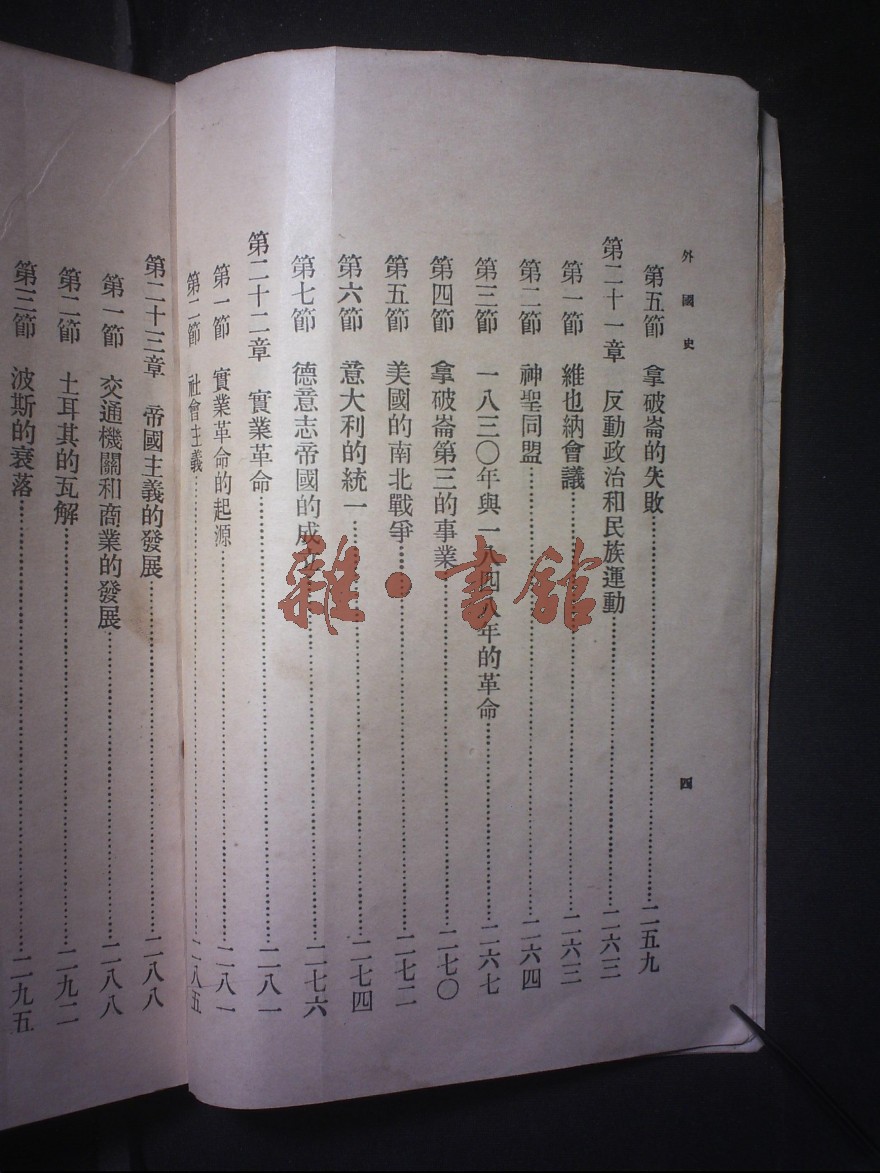 外國史
四
第五節　拿破崙的失敗……二五九
第二十一章　反動政治和民族運動……二六三
第一節　維也納會議……二六三
第二節　神聖同盟……二六四
第三節　一八三〇年與一八四八年的革命……二六七
第四節　拿破崙第三的事業……二七〇
第五節　美國的南北戰爭……二七二
第六節　意大利的統一……二七四
第七節　德意志帝國的成立……二七六
第二十二章　實業革命……二八一
第一節　實業革命的起源……二八一
第二節　社會主義……二八五
第二十三章　帝國主義的發展……二八八
第一節　交通機關和商業的發展……二八八
第二節　土耳其的瓦解……二九二
第三節　波斯的衰落……二九五
雜·書館